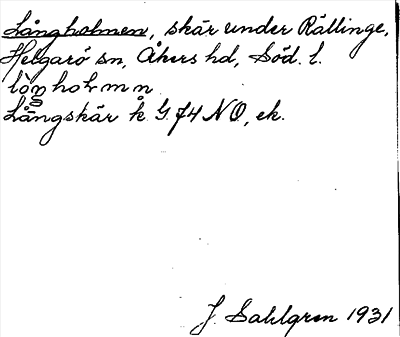 Långholmen, skär under Rällinge,
Helgarö sn, Åkers hd, Söd. l.
Långskär k. G. 74 NO, ek.
J. Sahlgren 1931